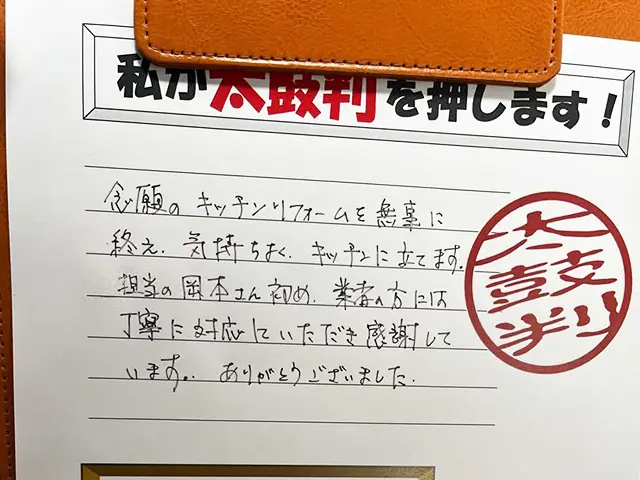 私が太鼓判を押します！
念願のキッチンリフォームを無事に
終え、気持ちよく、キッチンに立てます。
担当の岡本さん初め、業者の方には
丁寧に対応していただき感謝して
います。ありがとうございました。
太鼓判